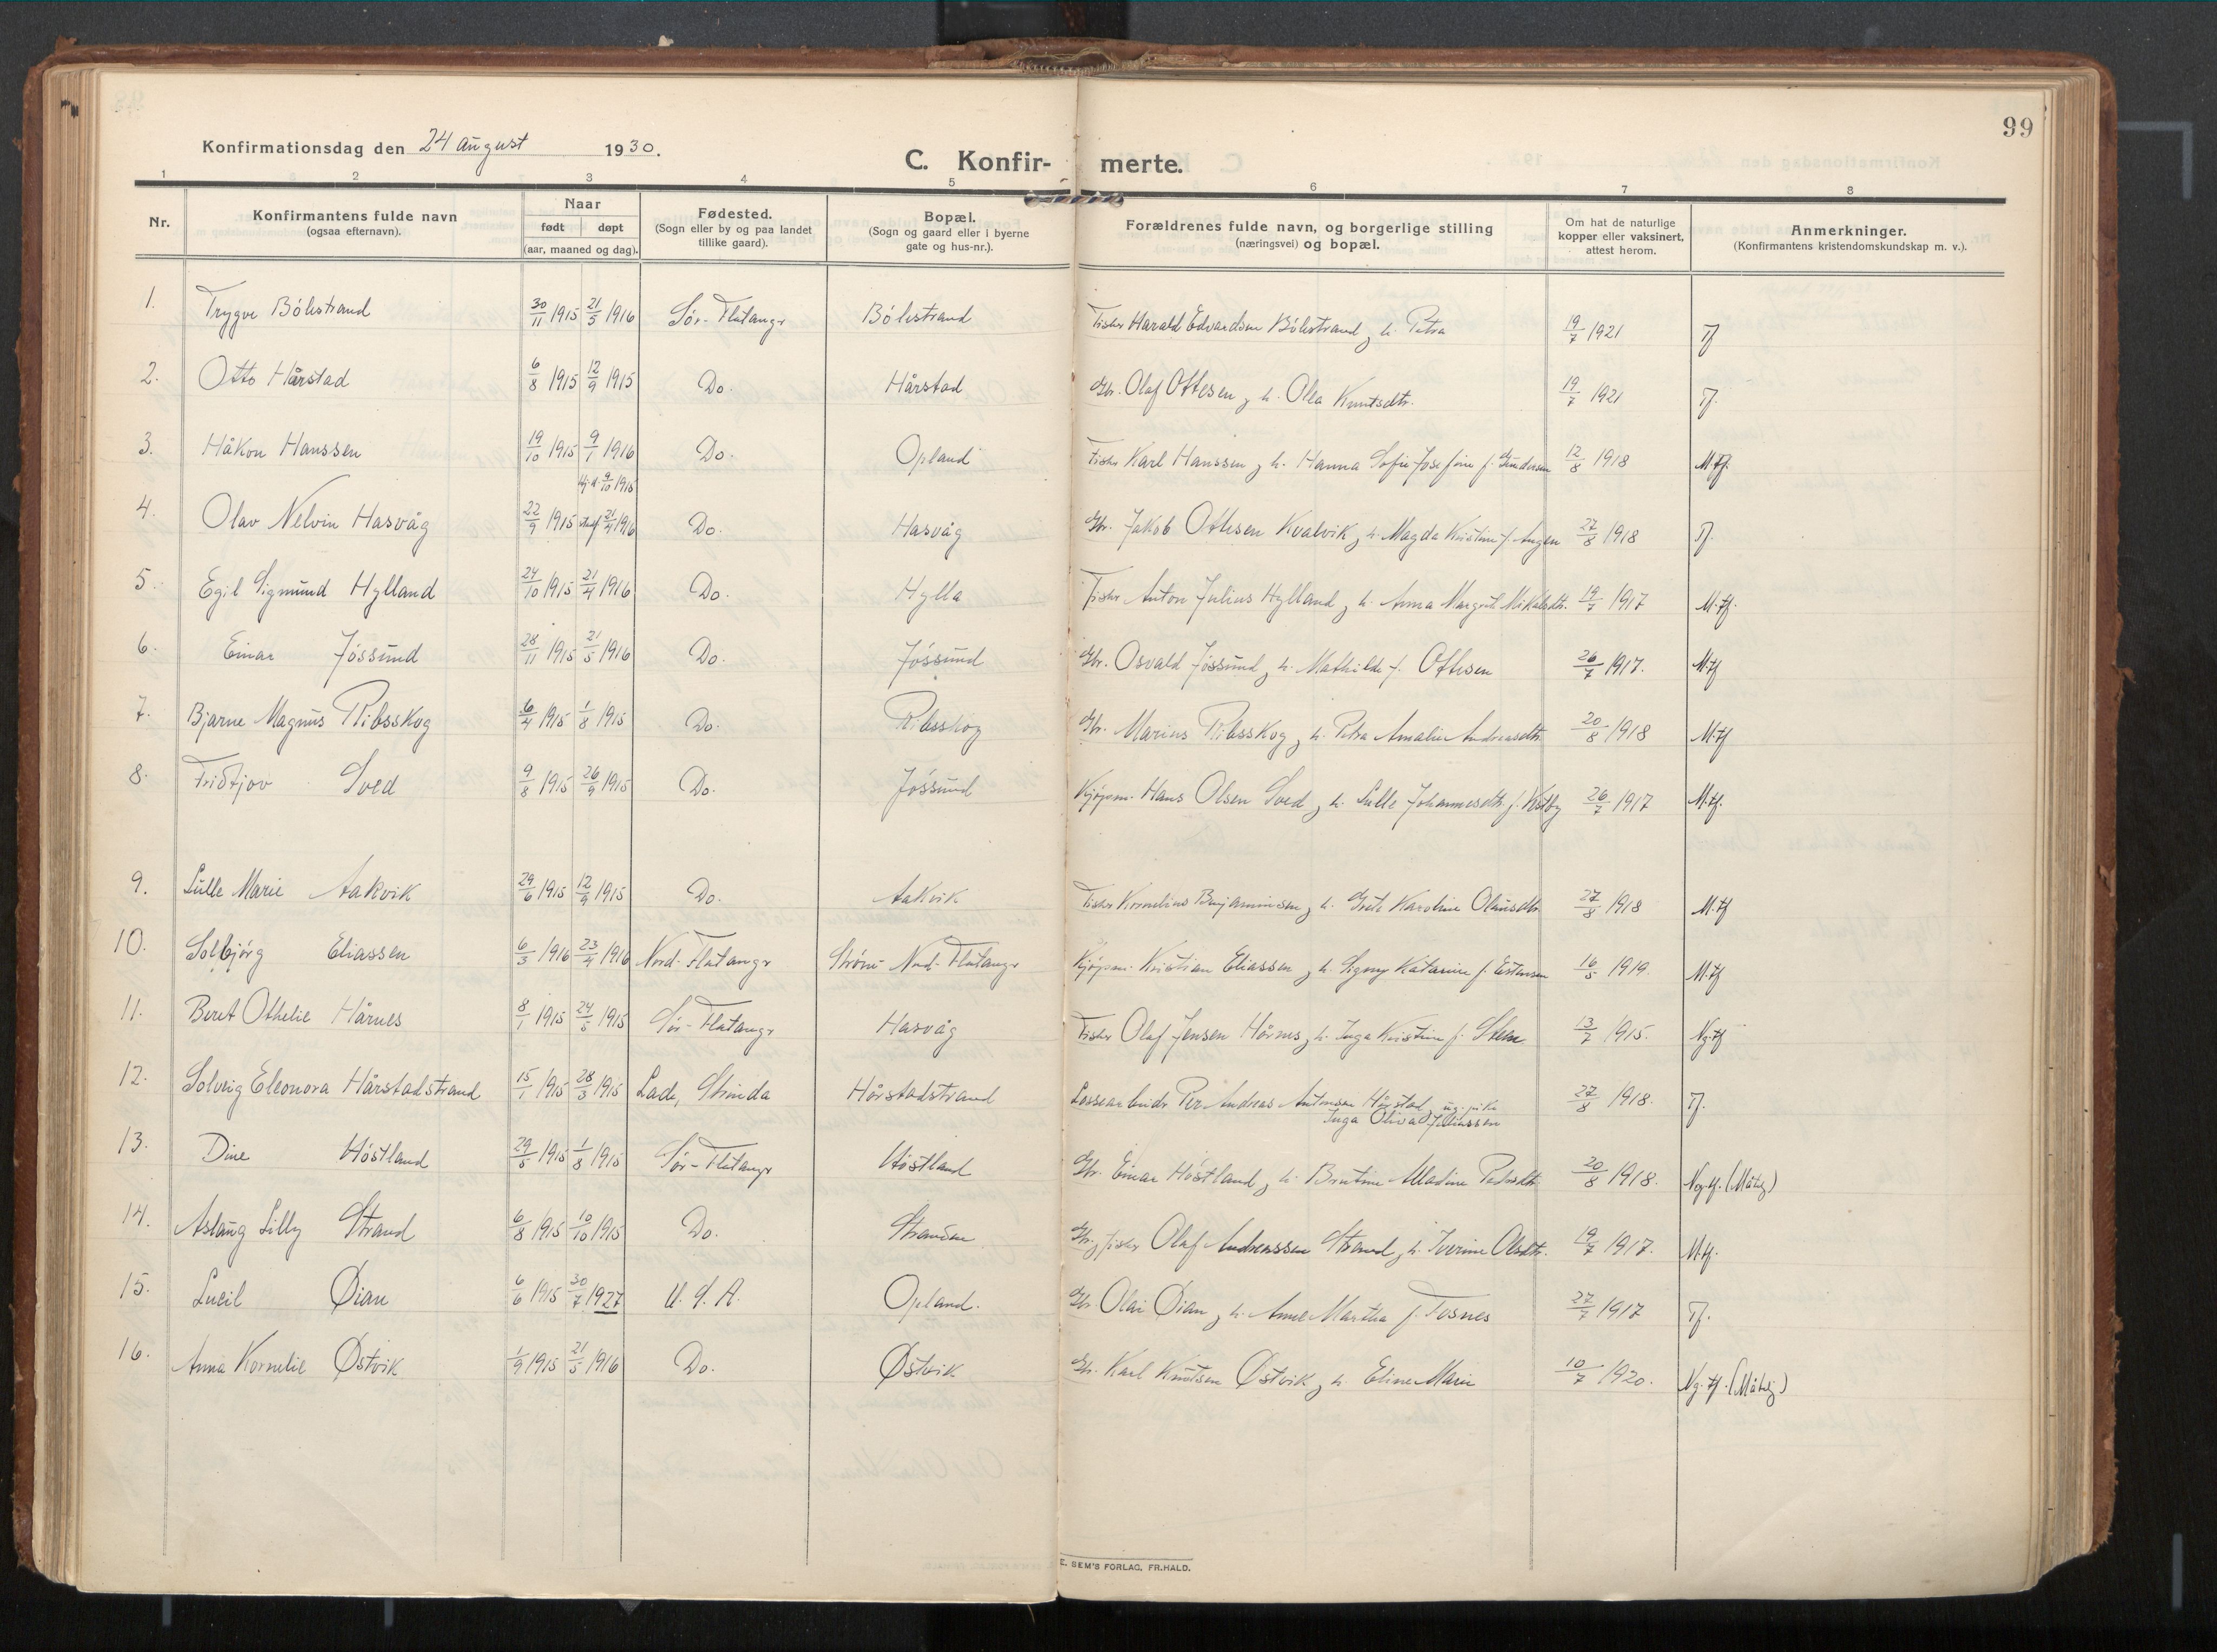 99
Konfirmationsdag den 24 august 1930.
C. Konfir- merte.
1 2 3 4 5 6 7 8
Nr.
Konfirmantens fulde navn
(ogsaa efternavn).
Naar
født døpt
(aar, maaned og dag).
Fødested.
(Sogn eller by og paa landet
tillike gaard).
Bopæl.
(Sogn og gaard eller i byerne
gate og hus-nr.).
Forældrenes fulde navn, og borgerlige stilling
(næringsvei) og bopæl.
Om hat de naturlige
kopper eller vaksinert,
attest herom.
Anmerkninger.
(Konfirmantens kristendomskundskap m. v.).
1. Trygve Bölestrand 30/11 1915 21/5 1916 Sör-Flatanger Bölestrand Fisker Harald Edvardsen Bölestrand og h. Petra 19/7 1921 Tf
2. Otto Hårstad 6/8 1915 12/9 1915 Do. Hårstad Gbr. Olaf Ottesen og h. Olea Knutsdtr. 19/7 1921 Tf.
3. Håkon Hanssen 19/10 1915 9/1 1916 Do. Opland Fisker Karl Hanssen og h. Hanna Sofie Josefine f. Gundersen 12/8 1918 M.tf.
Hj.d. 9/10 1915
4. Olav Nelvin Hasvåg 22/9 1915 stadf 21/4 1916 Do. Hasvåg Gbr. Jakob Ottesen Kvalvik og h. Magda Kristine f. Angen 27/8 1918 Tf.
5. Egil Sigmund Hylland 24/10 1915 21/4 1916 Do. Hylla Fisker Anton Julius Hylland og h. Anna Margrete Mikalsdtr. 19/7 1917 M.tf.
6. Einar Jössund 28/11 1915 21/5 1916 Do. Jössund Gbr. Osvald Jössund og h. Mathilde f. Ottesen 26/7 1917. M.tf
7. Bjarne Magnus Ribsskog 6/4 1915 1/8 1915 Do. Ribsskog Gbr. Marius Ribsskog og h. Petra Amalie Andreasdtr. 20/8 1918 M.tf
8. Fridtjov Sved 9/8 1915 26/9 1915 Do. Jössund Kjöpm. Hans Olsen Sved og h. Lulle Johannesdtr. f. Vestby 26/7 1917 M.tf.
9. Lulle Marie Aakvik 29/6 1915 12/9 1915 Do. Aakvik Fisker Kornelius Benjaminsen og h. Grete Karoline Olausdtr 27/8 1918 M.tf
10. Solbjörg Eliassen 6/3 1916 23/4 1916 Nord-Flatanger Ström Nord-Flatanger Kjöpm. Kristian Eliassen og h. Signy Katarine f. Estensen 16/5 1919. M.tf
11. Beret Othelie Hårnes 8/1 1915 24/5 1915 Sör-Flatanger Hasvåg Fisker Olaf Jensen Hårnes og h. Inga Kristine f. Steen 13/7 1915. Ng.tf
12. Solveig Eleonora Hårstadstrand 15/1 1915 28/3 1915 Lade, Strinda Hårstadstrand Lossearbeider Per Andreas Antonsen Hårstad og ug. pike
Inga Oliva Juliussen 27/8 1918. Tf.
13. Dine Höstland 29/5 1915 1/8 1915 Sör-Flatanger Höstland Gbr. Einar Höstland og h. Brutine Alladine Pedersdtr. 20/8 1918. Ng.tf. (Måtelig)
14. Aslaug Lilly Strand 6/8 1915 10/10 1915 Do. Stranden Gbr. og fisker Olaf Andreassen Strand og h. Iverine Olsdtr. 19/7 1917. M.tf.
15. Lucil Øian 6/6 1915 30/7 1927 U. S. A. Opland. Gbr. Olai Øian og h. Anne Martha f. Fosnes 27/7 1917 Tf.
16. Anna Kornelie Östvik 1/9 1915 21/5 1916 Do. Östvik Gbr. Karl Knutsen Östvik og h. Eline Marie 10/7 1920. Ng.tf. (Måtelig)
E. SEM'S FORLAG, FR.HALD.